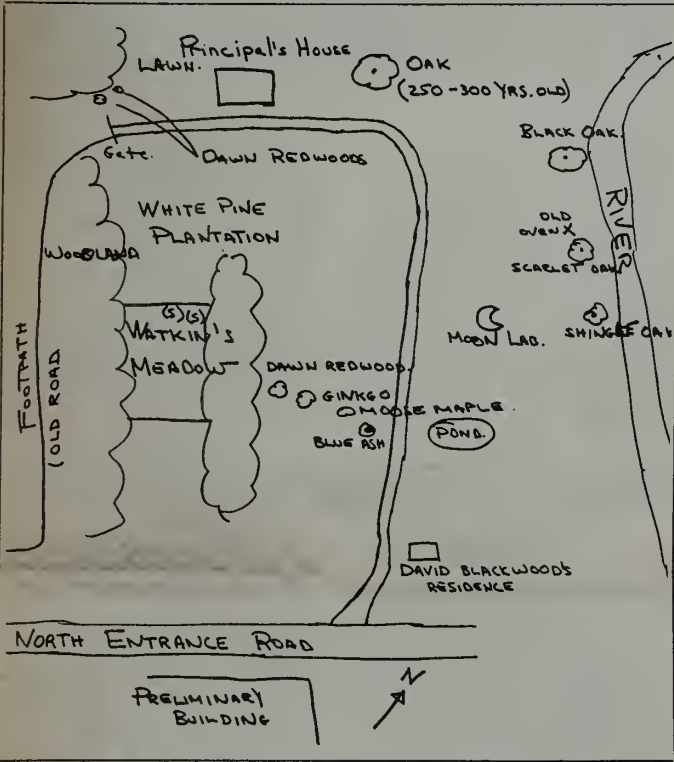 Principal's House
LAWN.
OAK
(250-300 YRS. OLD)
BLACK OAK.
Gate.
DAWN REDWOODS
RIVER
WHITE PINE
PLANTATION
OLD
OVEN X
SCARLET OAK
WOODLAND
(S)(S)
WATKIN'S
MEADOW
MOON LAB.
SHINGLE OAK
FOOTPATH
(OLD ROAD
DAWN REDWOOD.
GINKGO
MOOSE MAPLE.
BLUE ASH
POND.
DAVID BLACKWOOD'S
RESIDENCE
NORTH ENTRANCE ROAD
PRELIMINARY
BUILDING
N